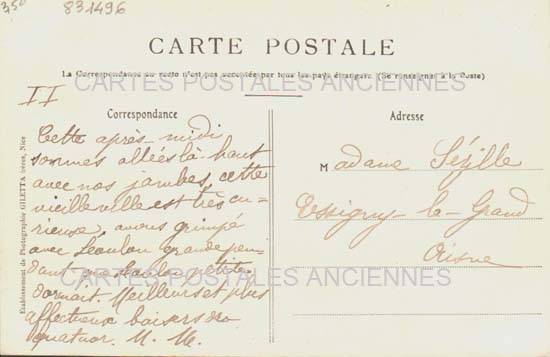 3,50
831496
CARTE POSTALE
La Correspondance au recto n'est pas acceptée par tous les pays étrangers (Se renseigner à la Poste)
CARTES POSTALES ANCIENNES
II
Correspondance
Cette après-midi
sommes allées là-haut
avec nos jambes, cette
vieille ville est très cu-
rieuse, avons grimpé
avec Loulou grande pen-
dant que Loulou petite
dormait. Meilleurs et plus
affectueux baisers du
quatuor. M. M.
Adresse
Madame Sézille
Essigny-le-Grand
Aisne
CARTES POSTALES ANCIENNES
Etablissement de Photographie GILETTA frères, Nice